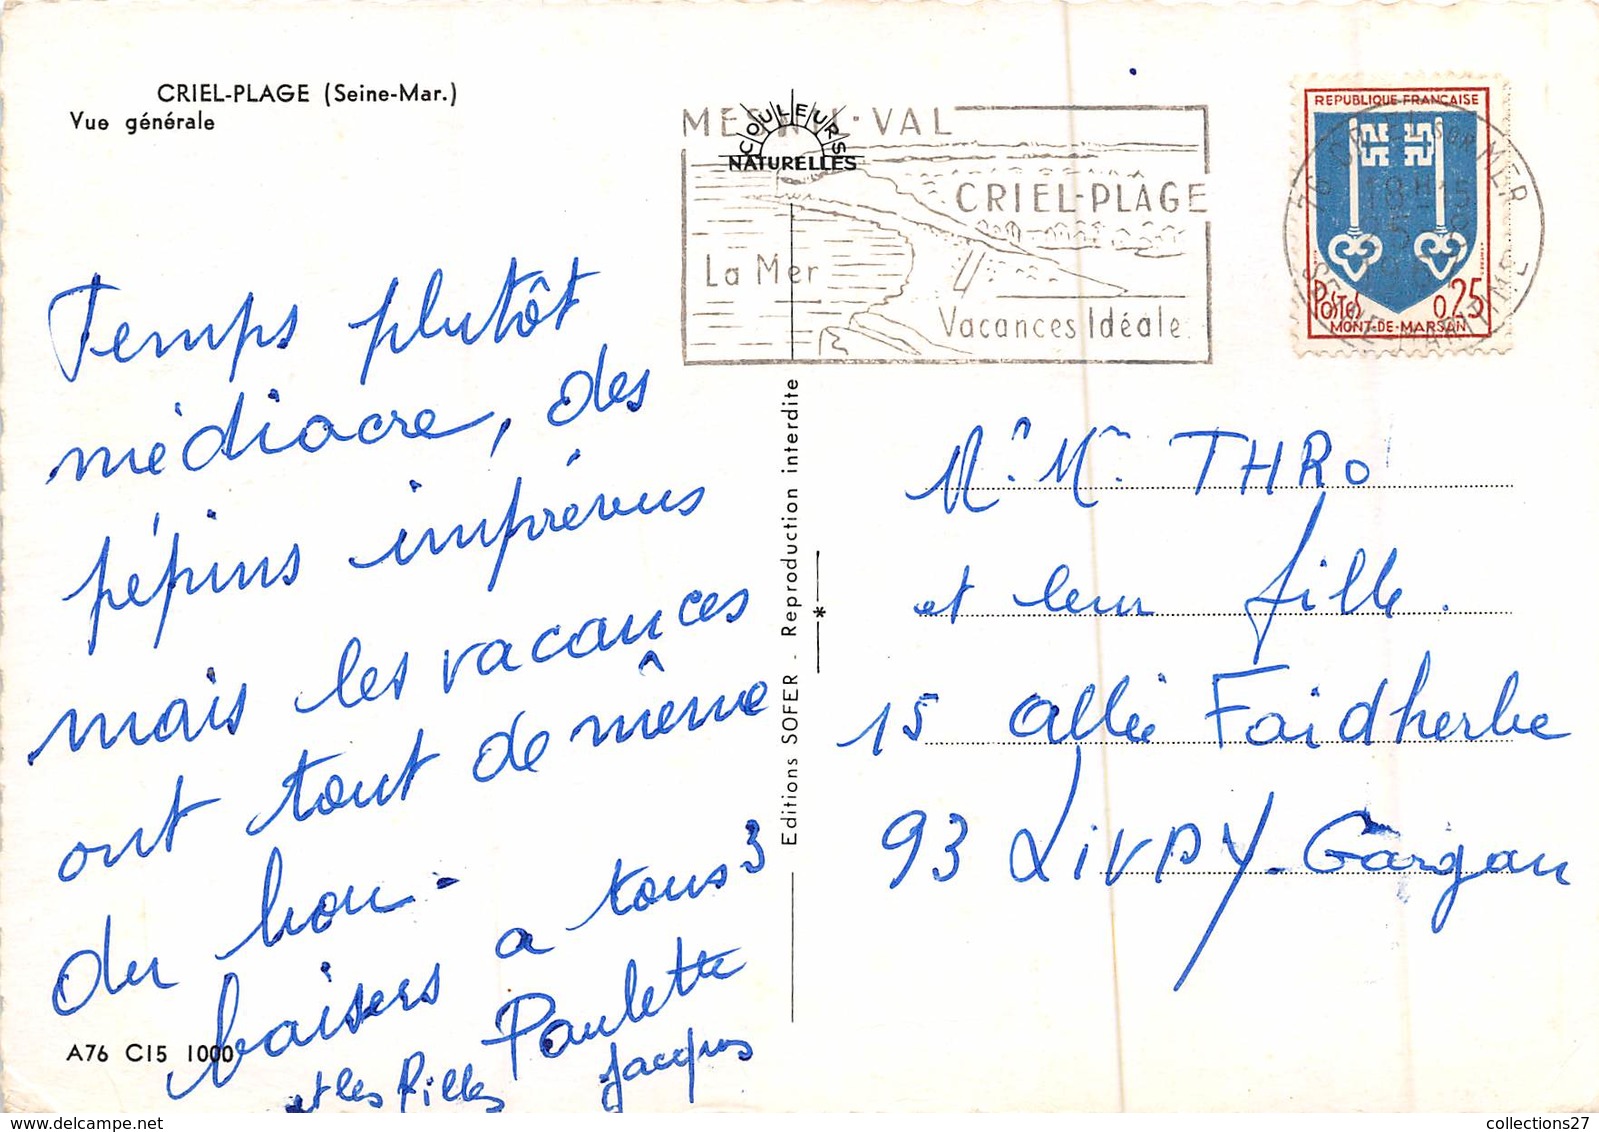 CRIEL-PLAGE (Seine-Mar.)
Vue générale
COULEURS
NATURELLES
MESNIL-VAL
CRIEL-PLAGE
La Mer
Vacances Idéale
REPUBLIQUE FRANÇAISE
Postes 0,25
MONT-DE-MARSAN
76 CRIEL SUR MER
18H15
SEINE MARITIME
Temps plutôt
médiocre, des
pépins imprévus
mais les vacances
ont tout de même
du bon -
baisers a tous 3
Paulette
Jacques
et les filles
Editions SOFER - Reproduction interdite
Mr Me THRO
et leur fille.
15 allée Faidherbe
93 LIVRY-Gargan
A76 C15 1000
collections27